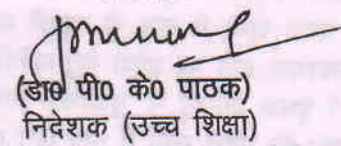 (डा० पी० के० पाठक)
निदेशक (उच्च शिक्षा)